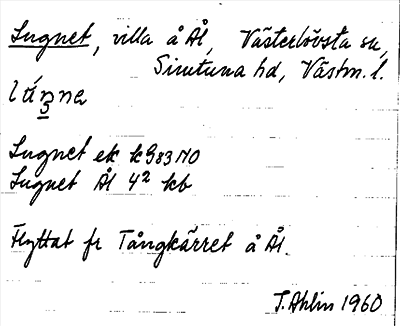 Lugnet, villa å Ål, Västerlövsta sn,
Simtuna hd, Västm. l.
Lugnet ek k983 NO
Lugnet Ål 4² kb
Flyttat fr Tångkärret å Ål.
T. Ahlin 1960